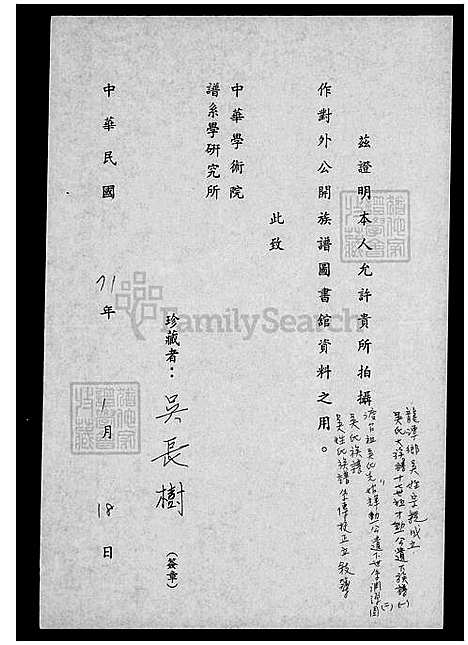 茲證明本人允許貴所拍攝
作對外公開族譜圖書館資料之用。
此致
中華學術院
譜系學研究所
珍藏者：吳長樹（簽章）
中華民國71年1月18日
龍潭鄉吳姓宗親成立
吳氏大族譜十七世祖才勳公遺下族譜(一)
渡台祖吳氏先始祥勳公遺下世系淵源圖(二)
吳氏族譜
吳姓氏族譜
FamilySearch